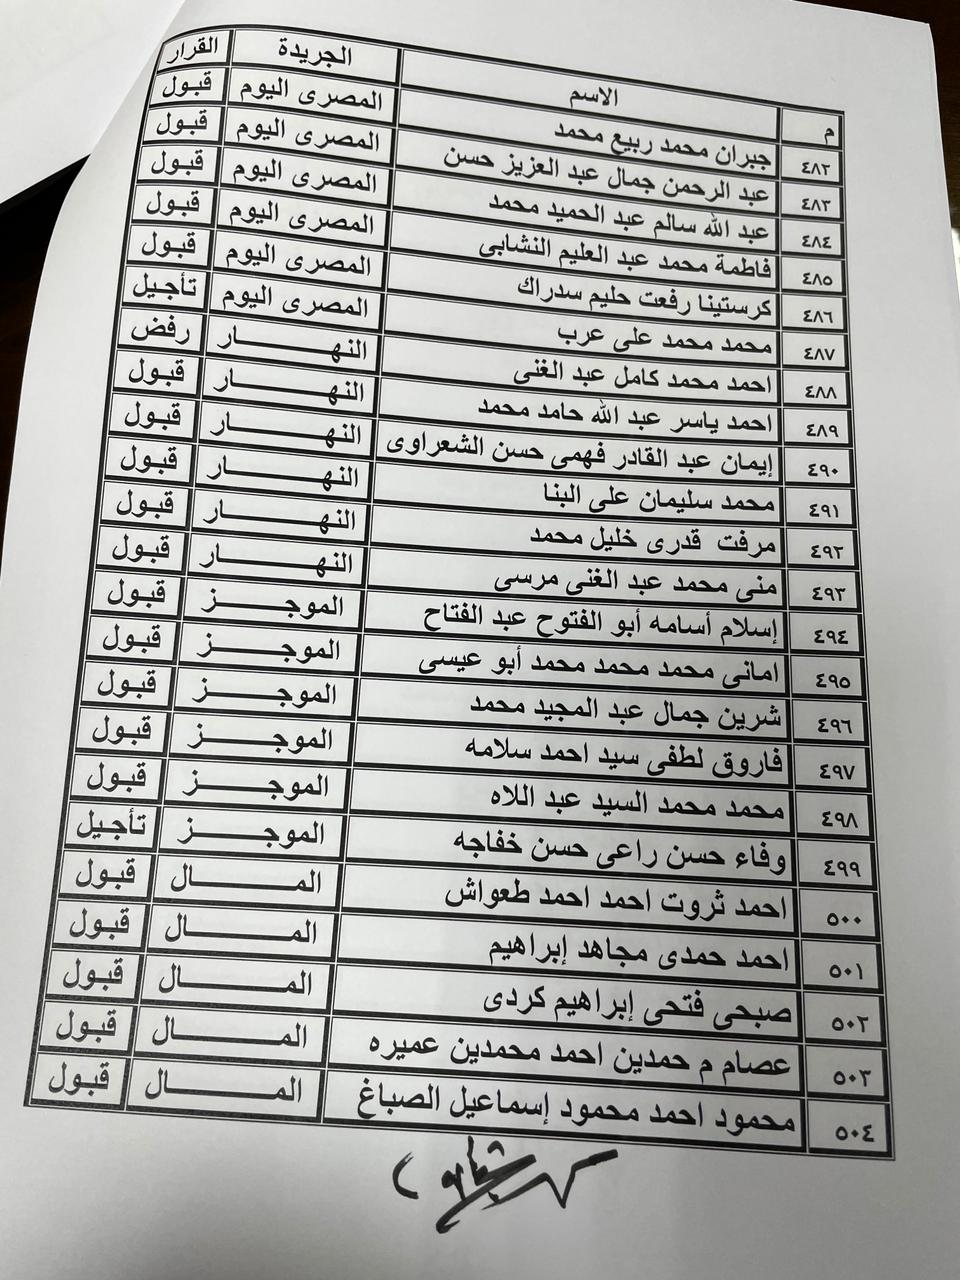 م الاسم الجريدة القرار
٤٨٢ جبران محمد ربيع محمد المصرى اليوم قبول
٤٨٣ عبد الرحمن جمال عبد العزيز حسن المصرى اليوم قبول
٤٨٤ عبد الله سالم عبد الحميد محمد المصرى اليوم قبول
٤٨٥ فاطمة محمد عبد العليم النشابى المصرى اليوم قبول
٤٨٦ كرستينا رفعت حليم سدراك المصرى اليوم قبول
٤٨٧ محمد محمد على عرب المصرى اليوم تأجيل
٤٨٨ احمد محمد كامل عبد الغنى النهــــــار رفض
٤٨٩ احمد ياسر عبد الله حامد محمد النهــــــار قبول
٤٩٠ إيمان عبد القادر فهمى حسن الشعراوى النهــــــار قبول
٤٩١ محمد سليمان على البنا النهــــــار قبول
٤٩٢ مرفت قدرى خليل محمد النهــــــار قبول
٤٩٣ منى محمد عبد الغنى مرسى النهــــــار قبول
٤٩٤ إسلام أسامه أبو الفتوح عبد الفتاح الموجــــــز قبول
٤٩٥ امانى محمد محمد محمد أبو عيسى الموجــــــز قبول
٤٩٦ شرين جمال عبد المجيد محمد الموجــــــز قبول
٤٩٧ فاروق لطفى سيد احمد سلامه الموجــــــز قبول
٤٩٨ محمد محمد السيد عبد اللاه الموجــــــز قبول
٤٩٩ وفاء حسن راعى حسن خفاجه الموجــــــز تأجيل
٥٠٠ احمد ثروت احمد احمد طعواش المــــــال قبول
٥٠١ احمد حمدى مجاهد إبراهيم المــــــال قبول
٥٠٢ صبحى فتحى إبراهيم كردى المــــــال قبول
٥٠٣ عصام م حمدين احمد محمدين عميره المــــــال قبول
٥٠٤ محمود احمد محمود إسماعيل الصباغ المــــــال قبول